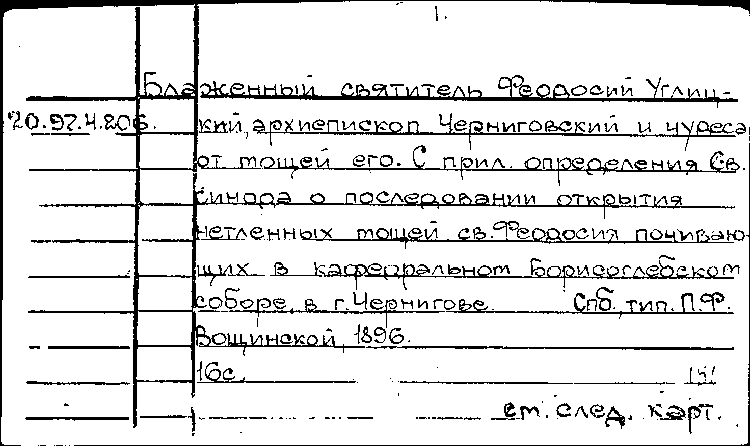 1.
Блаженный святитель Феодосий Углиц-
20.97.4.206. кий, архиепископ Черниговский и чудеса
от мощей его. С прил. определения Св.
Синода о последовании открытия
нетленных мощей св. Феодосия почиваю-
щих в кафедральном Борисоглебском
соборе, в г. Чернигове Спб, тип. П.Ф.
Вощинской, 1896.
16с.
см. след. карт.